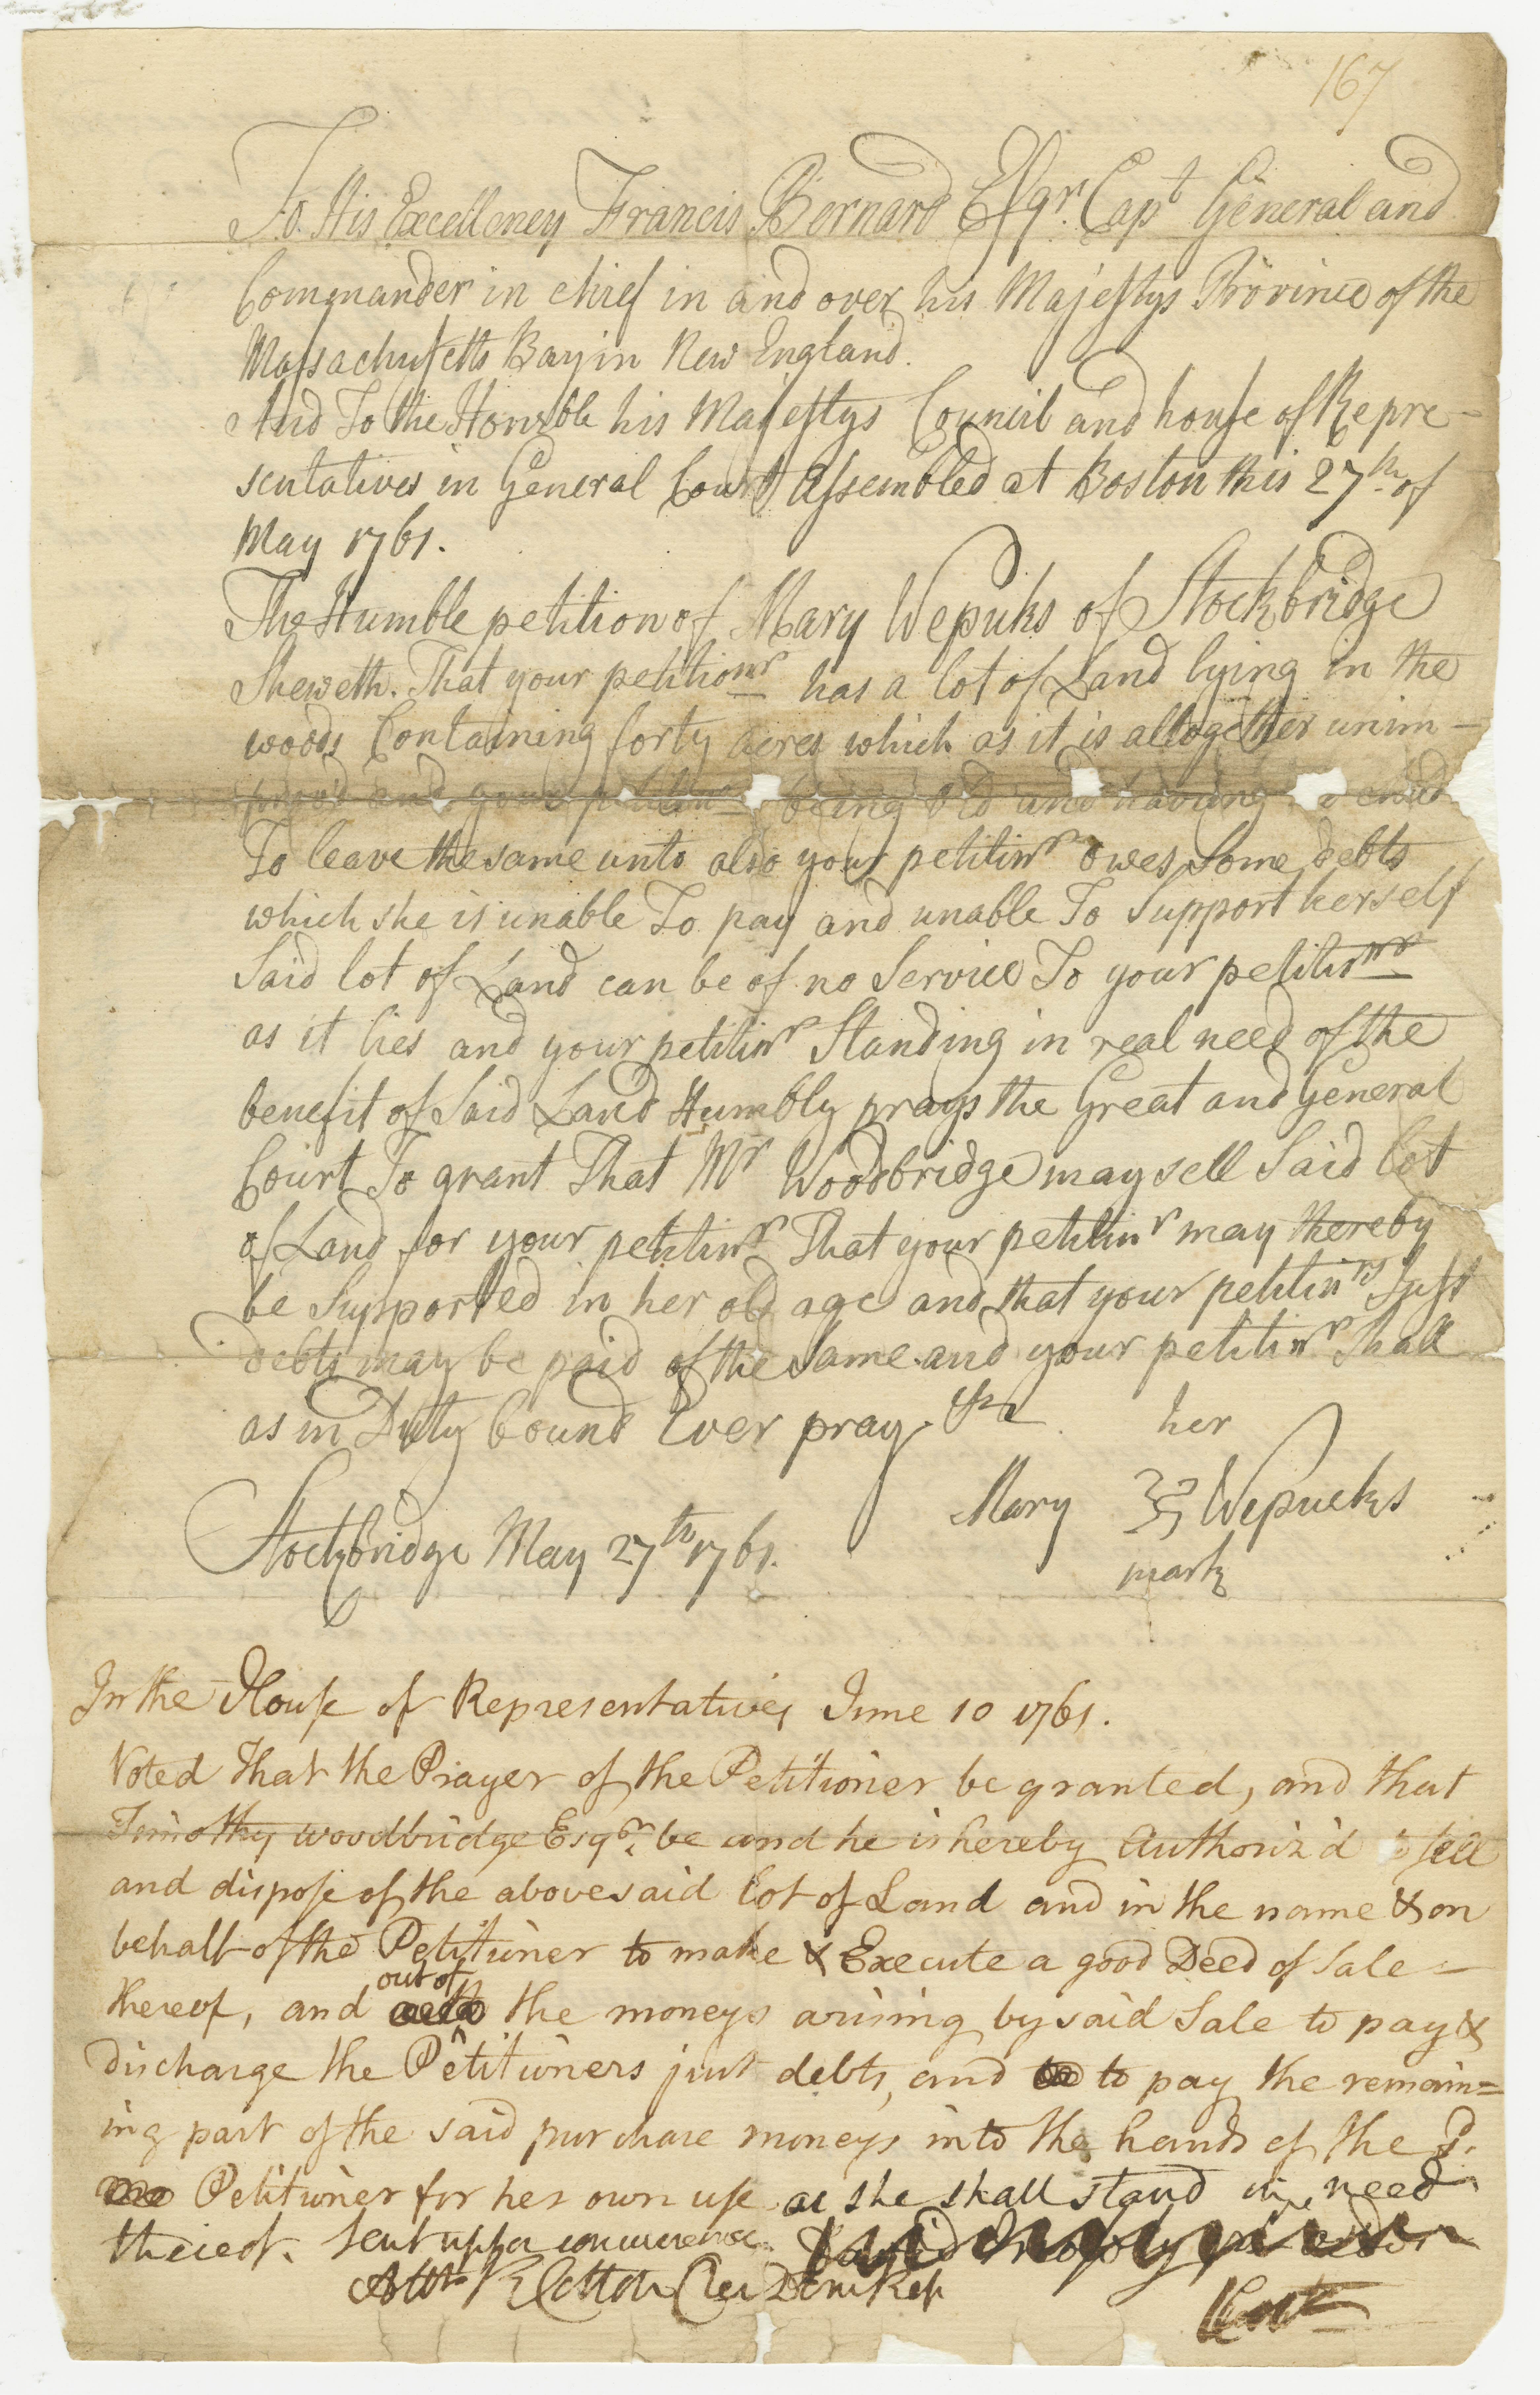 167
To His Excellency Francis Bernard Esqr. Capt General and
Commander in chief in and over his Majestys Province of the
Massachusetts Bay in New England.
And To the Honrble his Majestys Council and house of Repre-
sentatives in General Court Assembled at Boston this 27th of
May 1761.
The Humble petition of Mary Wepuks of Stockbridge
Sheweth. That your petitionr has a lot of Land lying in the
woods Containing forty acres which as it is altogether unim-
prov'd and your petitinr being old and having child
To leave the same unto also your petitinr owes Some debts
which she is unable To pay and unable To Support herself
Said lot of Land can be of no Service To your petitinr
as it lies and your petitinr Standing in real need of the
benefit of Said Land Humbly prays the Great and General
Court To grant That Mr Woodbridge may sell Said lot
of Land for your petitinr That your petitinr may thereby
be Supported in her old age and that your petitinrs Just
debts may be paid of the Same and your petitinr Shall
as in Duty bound Ever pray &c
her
Mary Wepucks
mark
Stockbridge May 27th 1761.
In the House of Representatives June 10 1761.
Voted that the Prayer of the Petitioner be granted, and that
Timothy woodbridge Esqr. be and he is hereby Authoriz'd to sell
and dispose of the abovesaid lot of Land and in the name & on
behalf of the Petitioner to make & Execute a good Deed of Sale
out of
thereof, and the moneys arising by said Sale to pay &
discharge the Petitioners just debts, and to pay the remain=
ing part of the said purchase moneys into the hands of the
Petitioner for her own use as she shall stand in need
thereof. Sent up for concurrence.
Attr R Cotton Cler Dom Rep